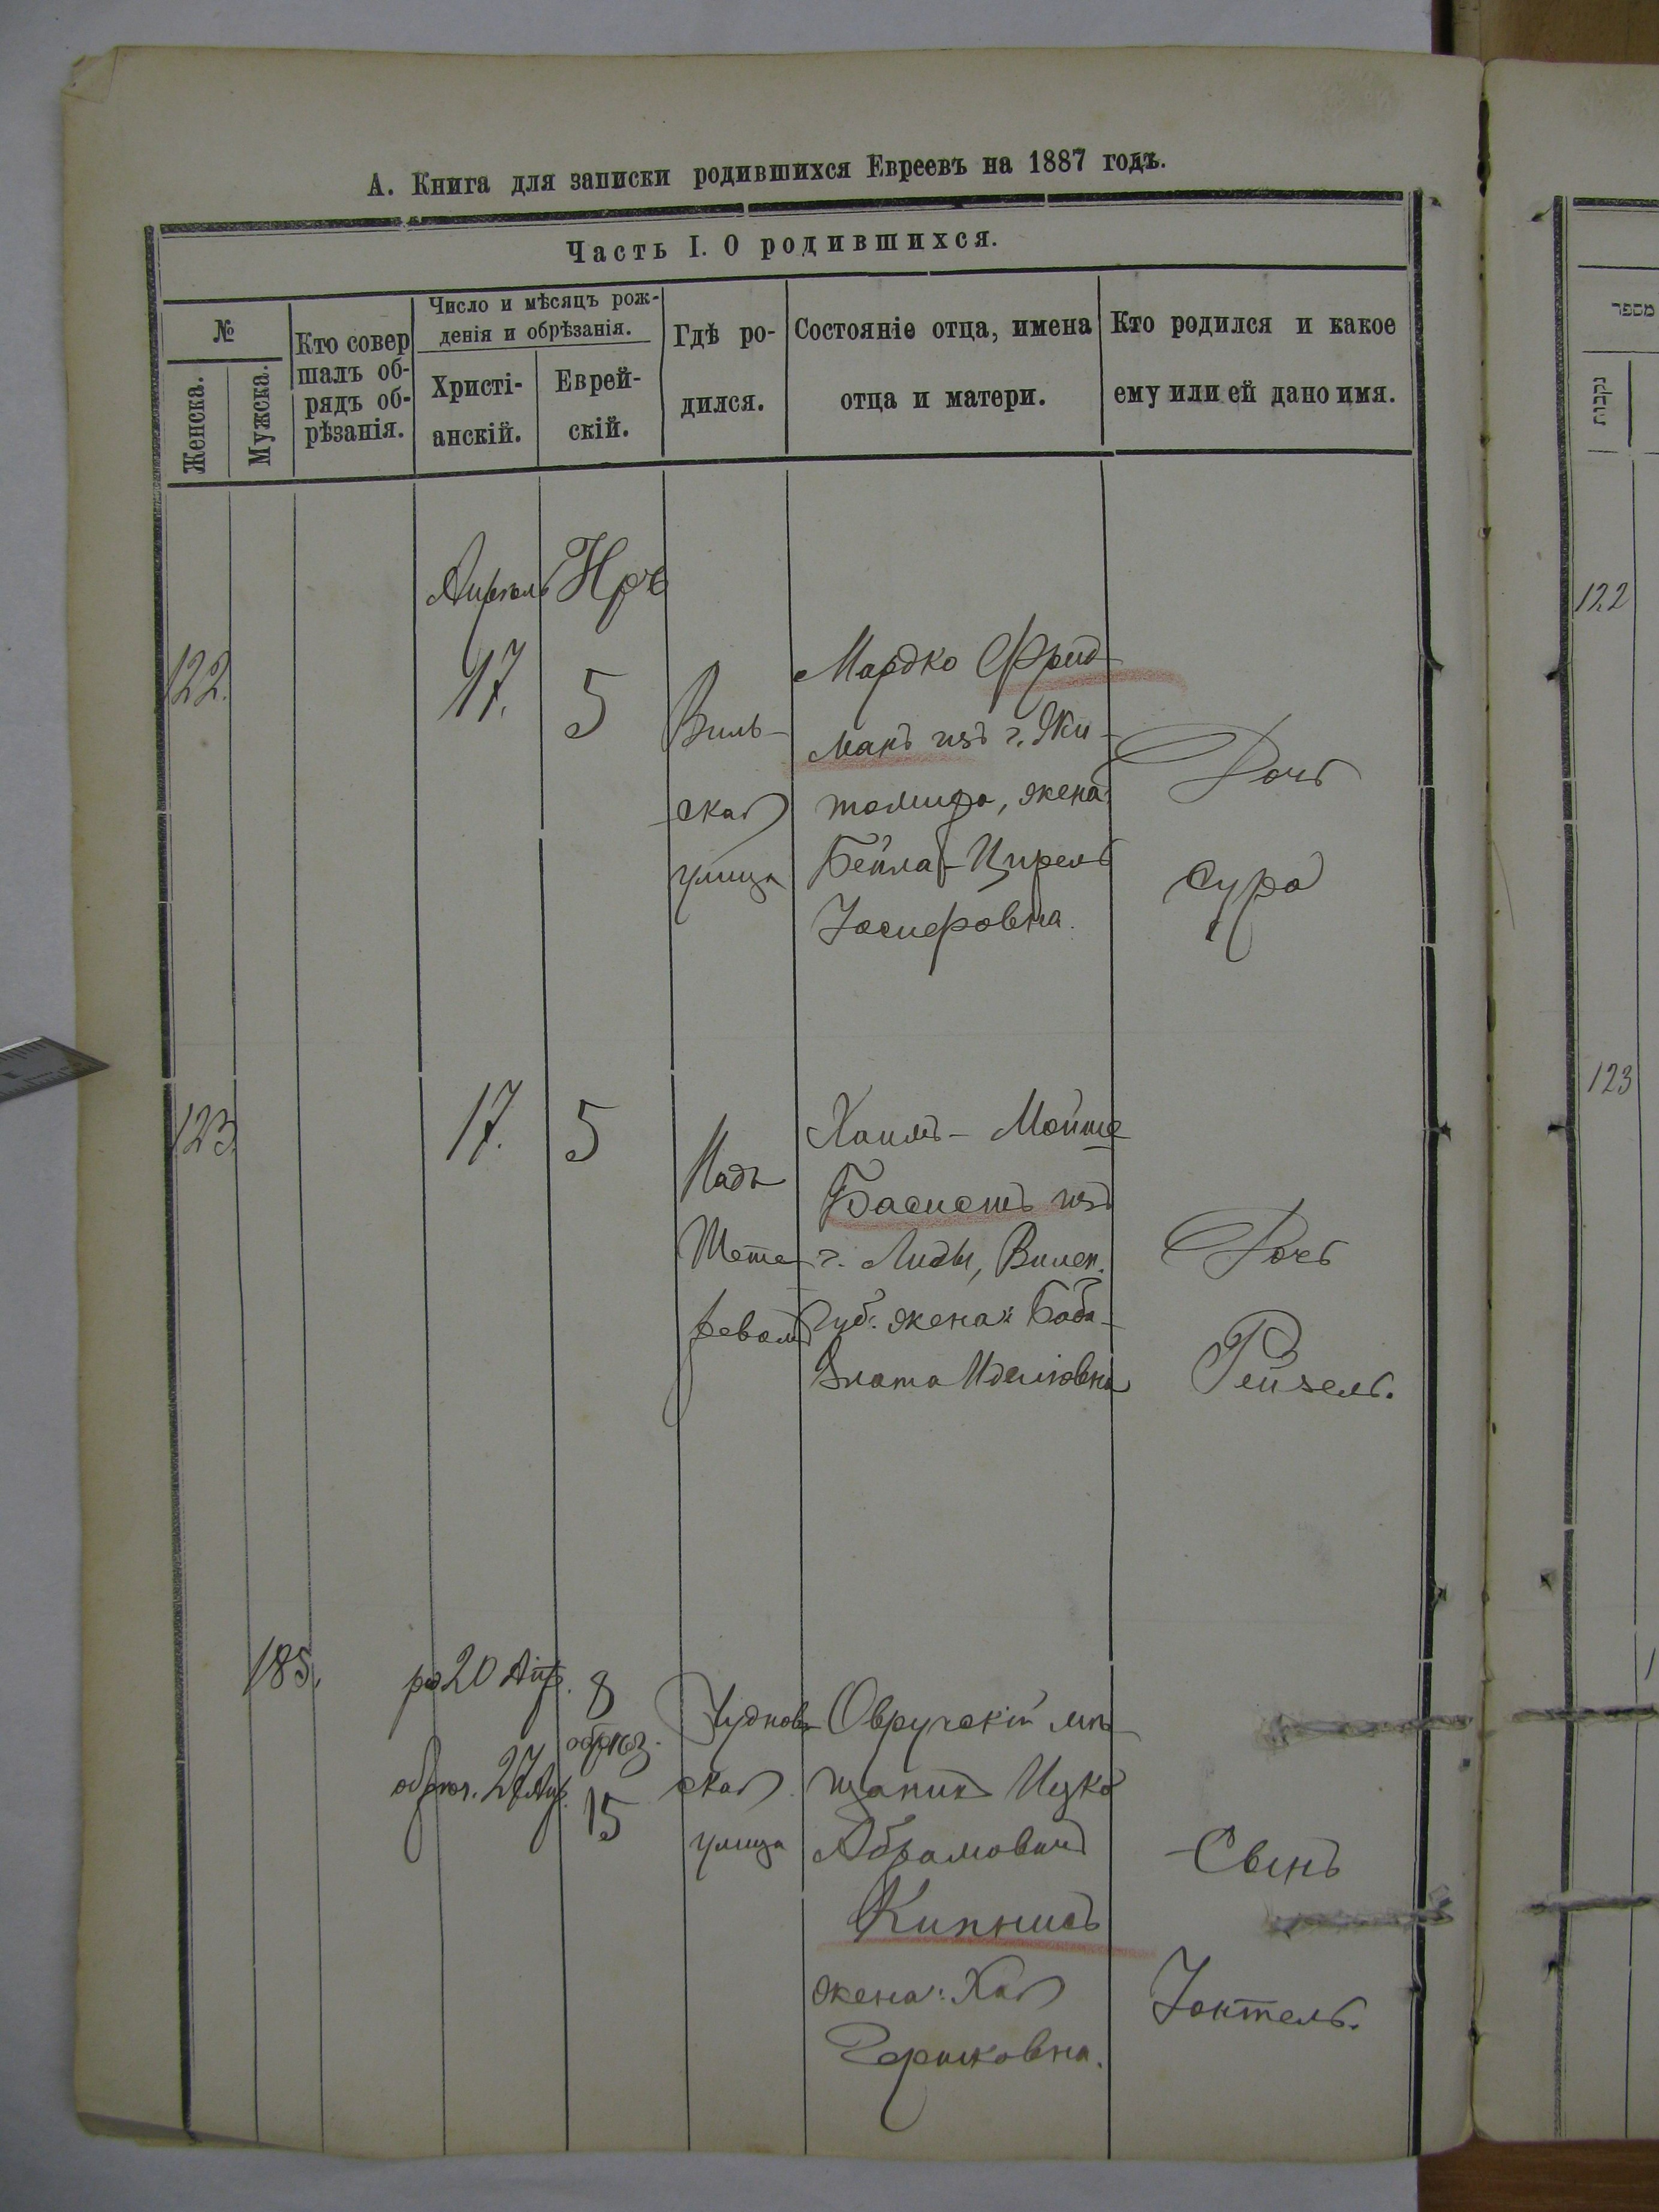 А. Книга для записки родившихся Евреевъ на 1887 годъ.
Часть I. О родившихся.
№
Женска.
Мужска.
Кто совер
шалъ об-
рядъ об-
рѣзанія.
Число и мѣсяцъ рож-
денія и обрѣзанія.
Христі-
анскій.
Еврей-
скій.
Гдѣ ро-
дился.
Состояніе отца, имена
отца и матери.
Кто родился и какое
ему или ей дано имя.
מספר
נקבות
Апрѣль
122.
17.
5
Виль-
ская
улица
Мордко Фрид-
манъ изъ г. Жи-
томира, жена:
Бейла-Цирель
Іосифовна.
Дочь
Сура
122
123.
17.
5
Надъ
Тете-
ревомъ
Хаимъ-Мойше
Басистъ изъ
г. Лиды, Вилен.
Губ. жена: Баба-
Злата
Дочь
Рейзель.
123
185.
ро 20 Апр.
8
обрѣз. 27 Апр.
обрѣз.
15
Чуднов-
ская
улица
Овручскій мѣ-
щанинъ Ицко
Абрамовичъ
Кипнисъ
жена: Хая
Гершковна.
Сынъ
Іоктель.